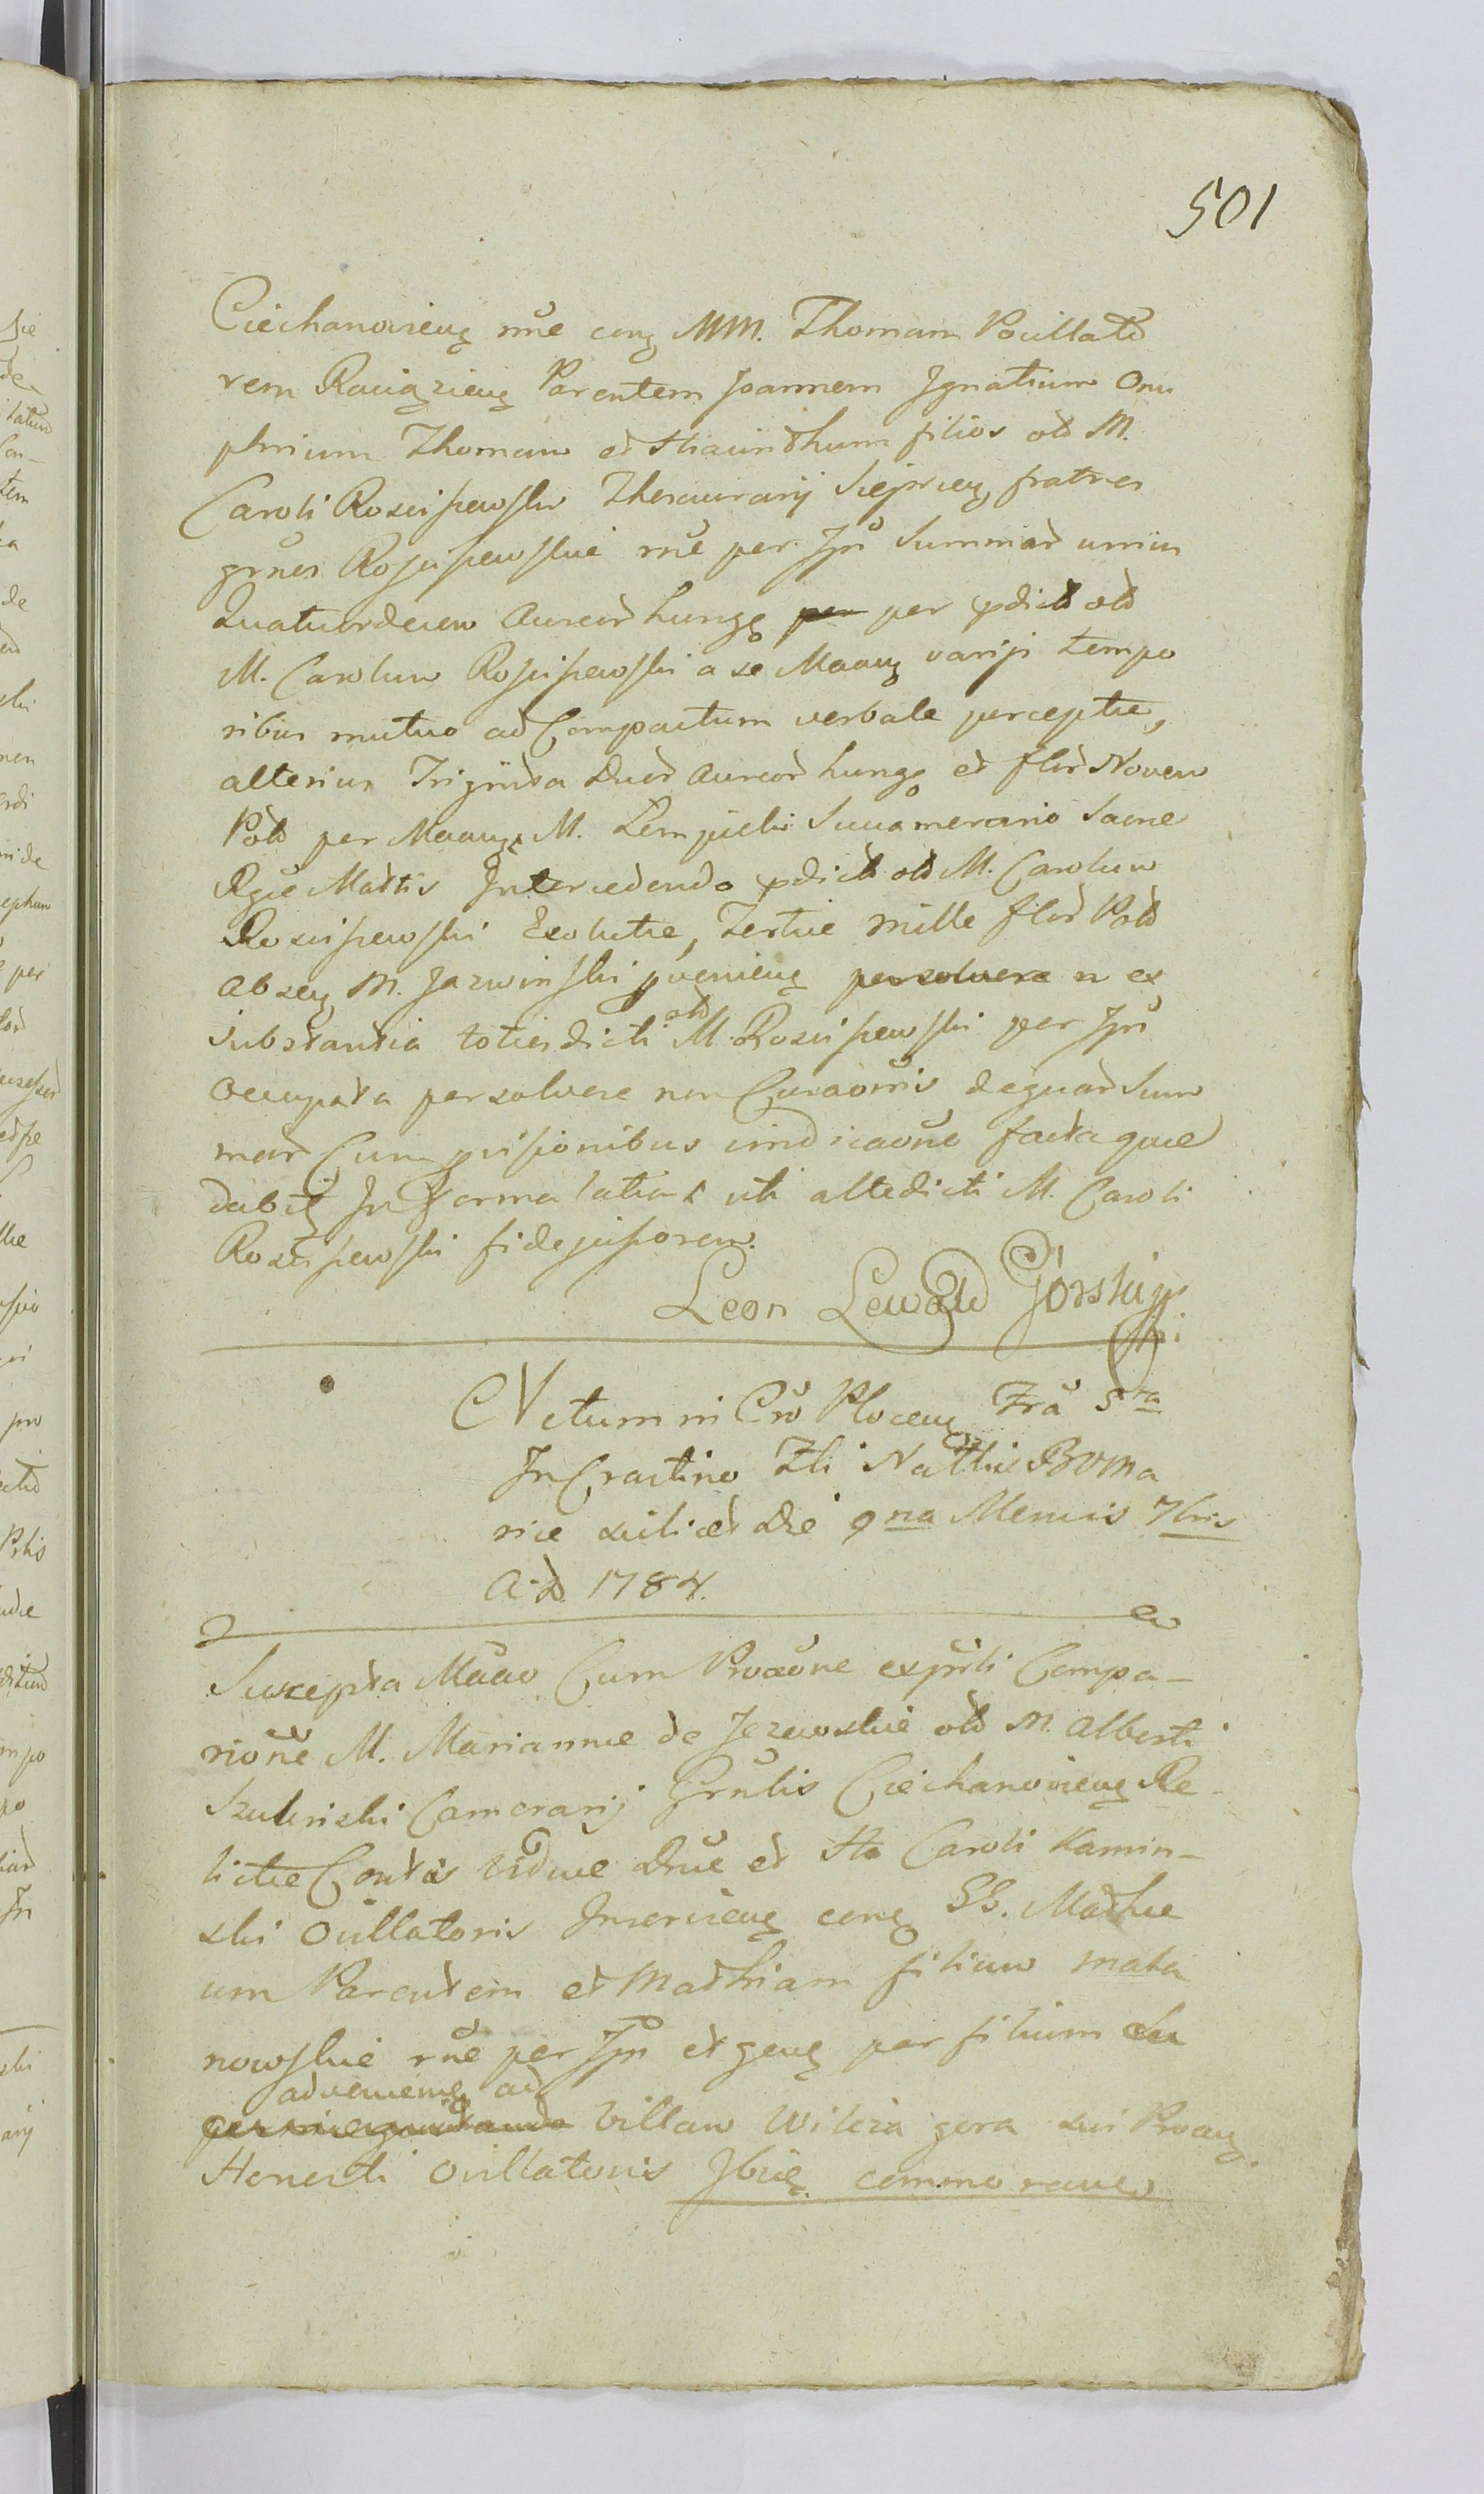 501
Ciechanovien rne cong MM. Thomam Pocillato
rem Raciązien Parentem Joannem Ignatium Onu
phrium Thomam et Hiacinthum filios old M.
Caroli Rosciszewski Thesaurarij Sieprcen fratres
grnes Rosciszewskie rne per Ipm Summar unius
Quatuordecem Aureor hung per pdict old
M. Carolum Rosciszewski a se Maan varijs tempo
ribus mutuo ad Compactum verbale perceptæ,
alterius Triginta Duor aureor hung et flor Novem
Pol per Maan M. Lempicki Succamerario Sacræ
Rgie Mattis Intercedendo pdict old M. Carolum
Rosciszewski Exolutæ, Tertiæ mille flor Pol
Ab seu M. Jarwinski pvenien persolvere n ex
substantia totiesdicti old M. Rosciszewski per Ipm
occupata persolvere non Curaomis de quar Sum
mar Cum pvisionibus vindicaone facta quæ
dabit In Forma latius uti altedicti M. Caroli
Rosciszewski fidejussorem.
Leon Lewald Górski
Actum in Cro Plocen Fra 5ta
In Crastino Fti Nattis BVMa
riæ scilicet Die 9na Mensis 7bris
A. D. 1784.
Suscepta Maao Cum Proaone exprti Compa-
rione M. Mariannæ de Jezewskie old M. Alberti
Szulinski Camerarij Grnlis Ciechanovien Re-
lictæ Contis viduæ Dne et Ho Caroli Kamin-
ski Oullatoris Inservien cong GG. Mathæ
um Parentem et Mathiam filium mala
nowskie rne per Ipm et gen per filium
advenien ad
villam Wilcza gora sui Proan
Honesti oullatoris Ibid commoran